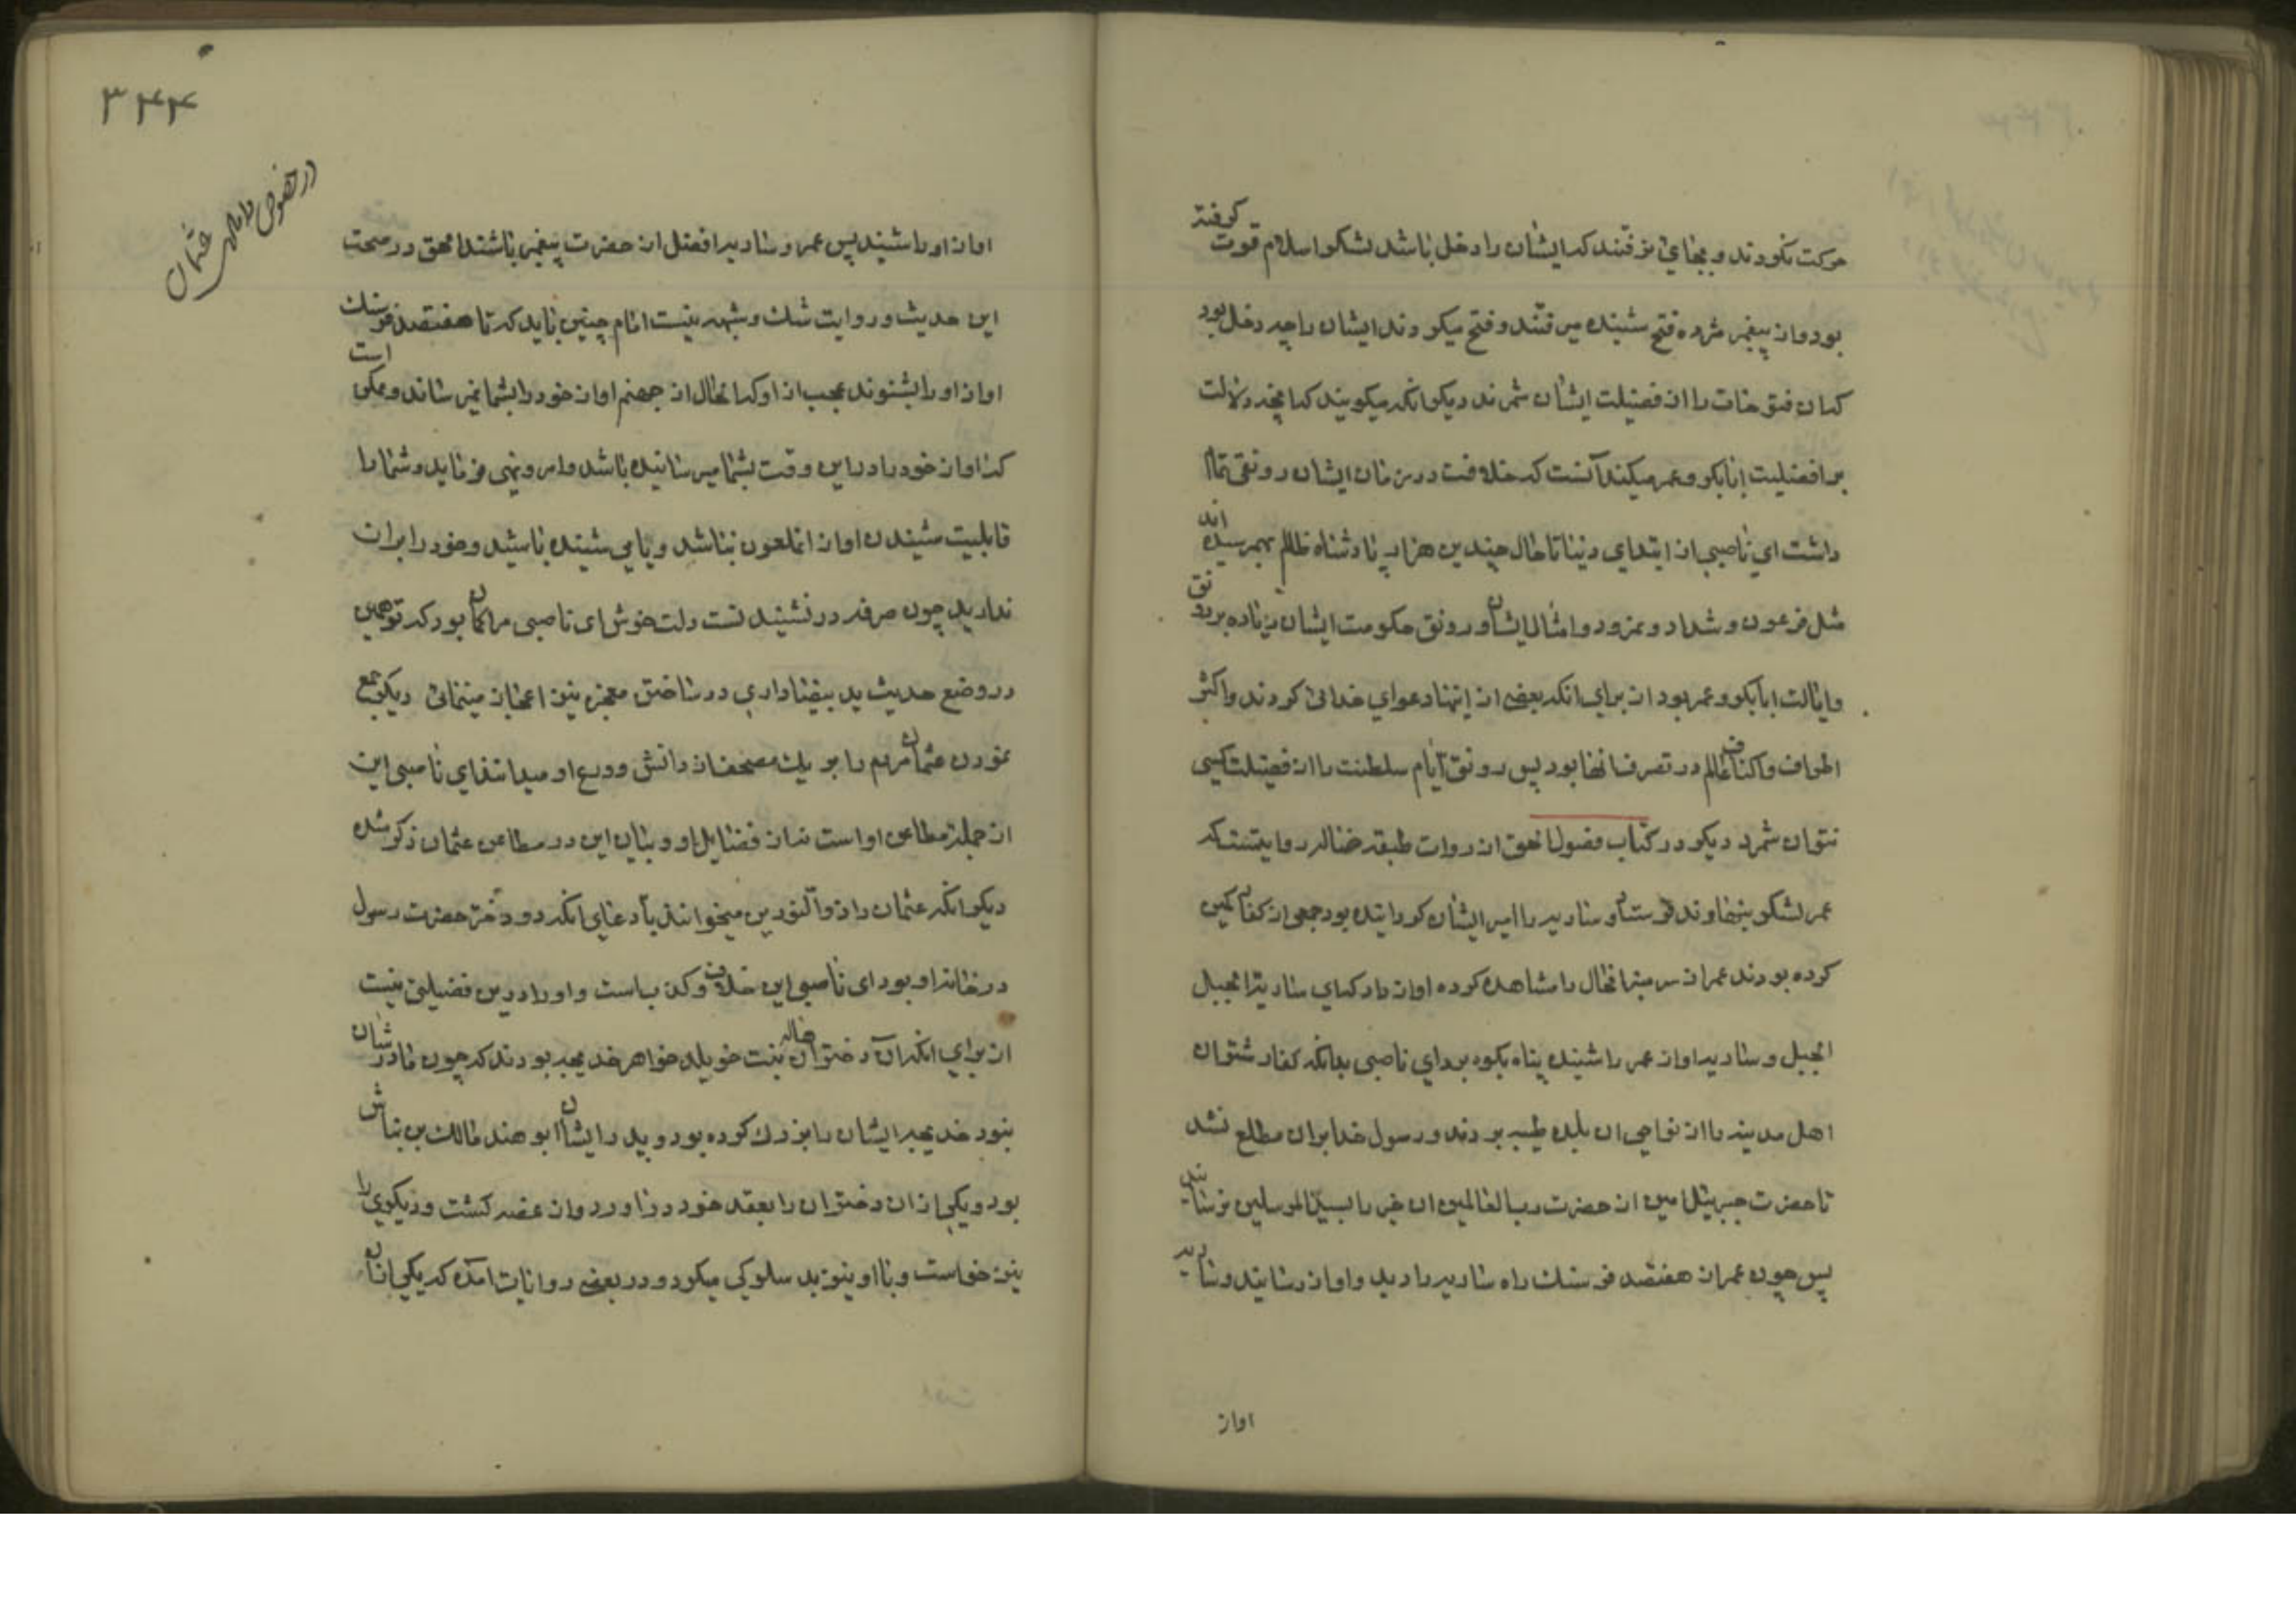 حرکت نکردند و بجای نرفتند که ایشان را دخل باشد لشکر اسلام قوت کرفته
بود و از پیغمبر مژده فتح شنیده میرفتند و فتح میکردند ایشان را چه دخل بود
که ان فتوحات را از فضیلت ایشان شمرند دیکر انکه میکویند که انچه دلالت
بر افضلیت ابابکر و عمر میکند آنست که خلافت در زمان ایشان رونقی تمام
داشت ای ناصبی از ابتدای دنیا تا حال چندین هزار پادشاه ظالم بهمرسیده اند
مثل فرعون و شداد و نمرود و امثال ایشان و رونق حکومت ایشان زیاده بر رونق
وایالت ابابکر و عمر بود از برای انکه بعضی از اینها دعوای خدائی کردند و اکثر
اطراف و اکناف عالم در تصرف انها بود پس رونق ایام سلطنت را از فضیلت کسی
نتوان شمرد دیکر در کتاب فصول الحق از روات طبقه ضاله روایتست که
عمر لشکر بنهاوند فرستاد و ساریه را امیر ایشان کردانیده بود جمعی از کفار کمین
کرده بودند عمر از سر منبر انحال را مشاهده کرده اواز داد که ای ساریة الجبل
الجبل و ساریه اواز عمر را شنیده پناه بکوه برد ای ناصبی بدانکه کفار شتران
اهل مدینه را از نواحی ان بلده طیبه بردند و رسول خدا بران مطلع نشد
تا حضرت جبرئیل امین از حضرت رب العالمین ان خبر را بسید المرسلین نرسانید
پس چون عمر از هفتصد فرسنك راه ساریه را دید و اواز رسانید و ساریه
اواز
۳۴۴
در خصوص دامادی عثمان
اواز او را شنید پس عمر و ساریه افضل از حضرت پیغمبر باشند الحق در صحت
این حدیث و روایت شك و شبهه نیست امام چنین باید که تا هفتصد فرسنك
اواز او را بشنوند عجب از او که الحال از جهنم اواز خود را بشما نمیرساند و ممکن است
که اواز خود را در این وقت بشما میرسانیده باشد و امر و نهی میفرماید و شما را
قابلیت شنیدن اواز انملعون نباشد و یا می شنیده باشید و خود را بران
ندارید چون صرفه در نشنیدنست دلت خوش ای ناصبی مرا کمان بود که تو همین
در وضع حدیث ید بیضا داری در ساختن معجزه نیز اعجاز مینمائی دیکر جمع
نمودن عثمان مردم را بر یك مصحف از دانش و ورع او میدانند ای ناصبی این
از جمله مطاعن او است نه از فضایل او و بیان این در مطاعن عثمان ذکر شده
دیکر انکه عثمان را ذو النورین میخوانند بادعای انکه دو دختر حضرت رسول
در خانه او بود ای ناصبی این خلاف و کذب است و او را درین فضیلتی نیست
از برای انکه آن دختران هاله بنت خویلد خواهر خدیجه بودند که چون مادرشان
بنود خدیجه ایشان را بزرك کرده بود و پدر ایشان ابو هند مالك بن نباش
بود و یکی از ان دختران را بعقد خود دراورد و از غصه کشت و دیکری را
نیز خواست و با او نیز بد سلوکی میکرد و در بعضی روایات امده که یکی از ان